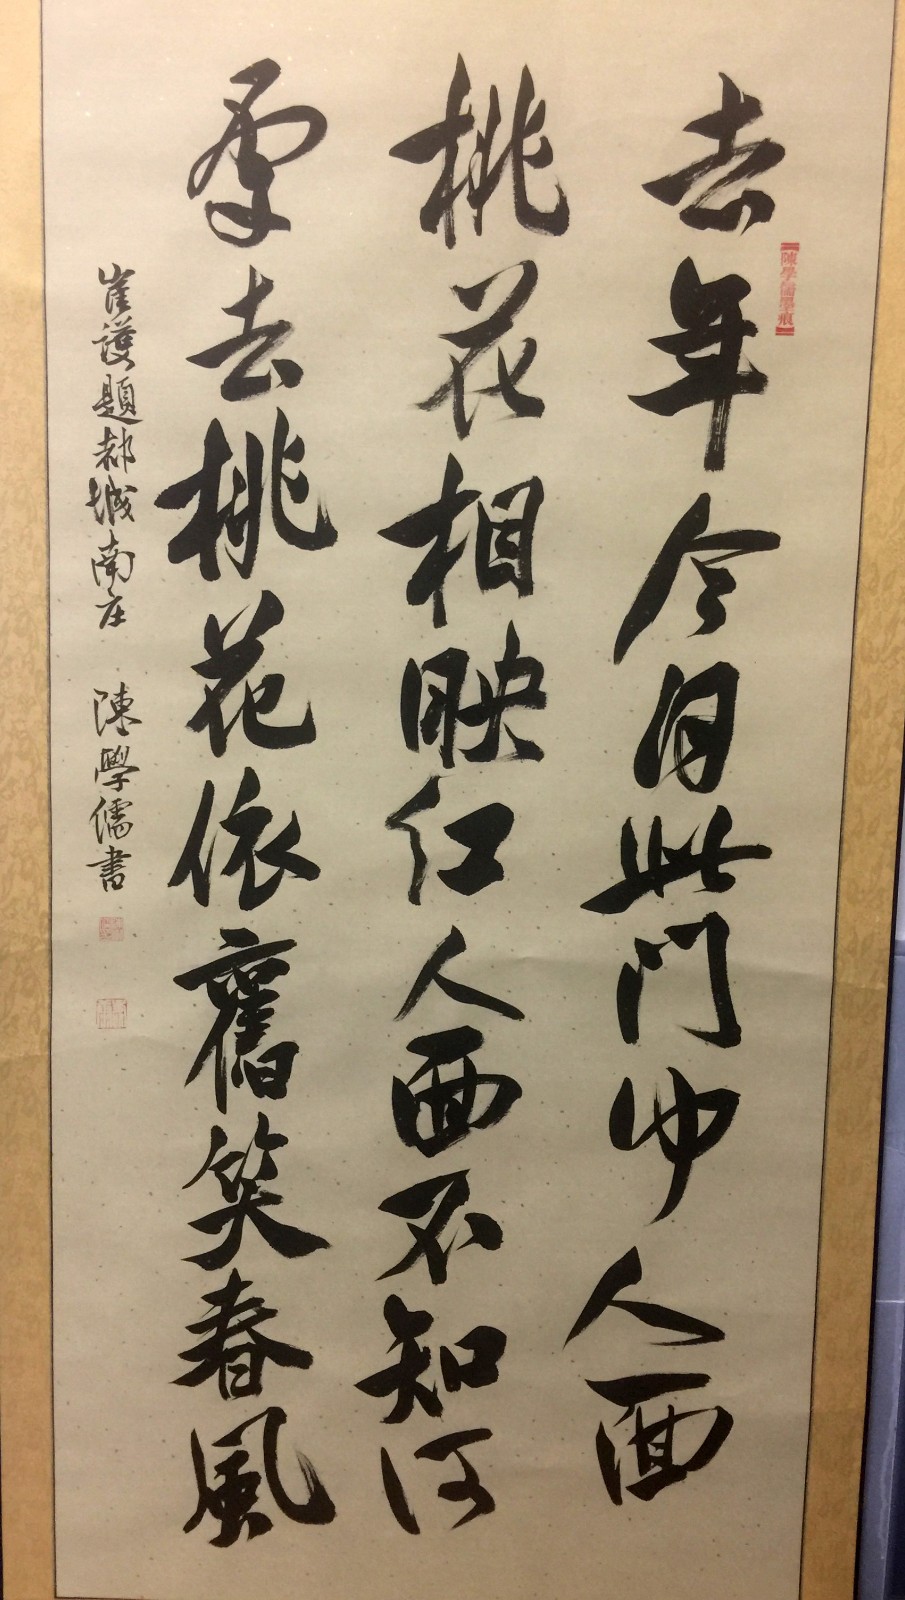 去年今日此門中人面
桃花相映紅人面不知何
處去桃花依舊笑春風
崔護題都城南庄 陳學儒書
陳學儒墨痕